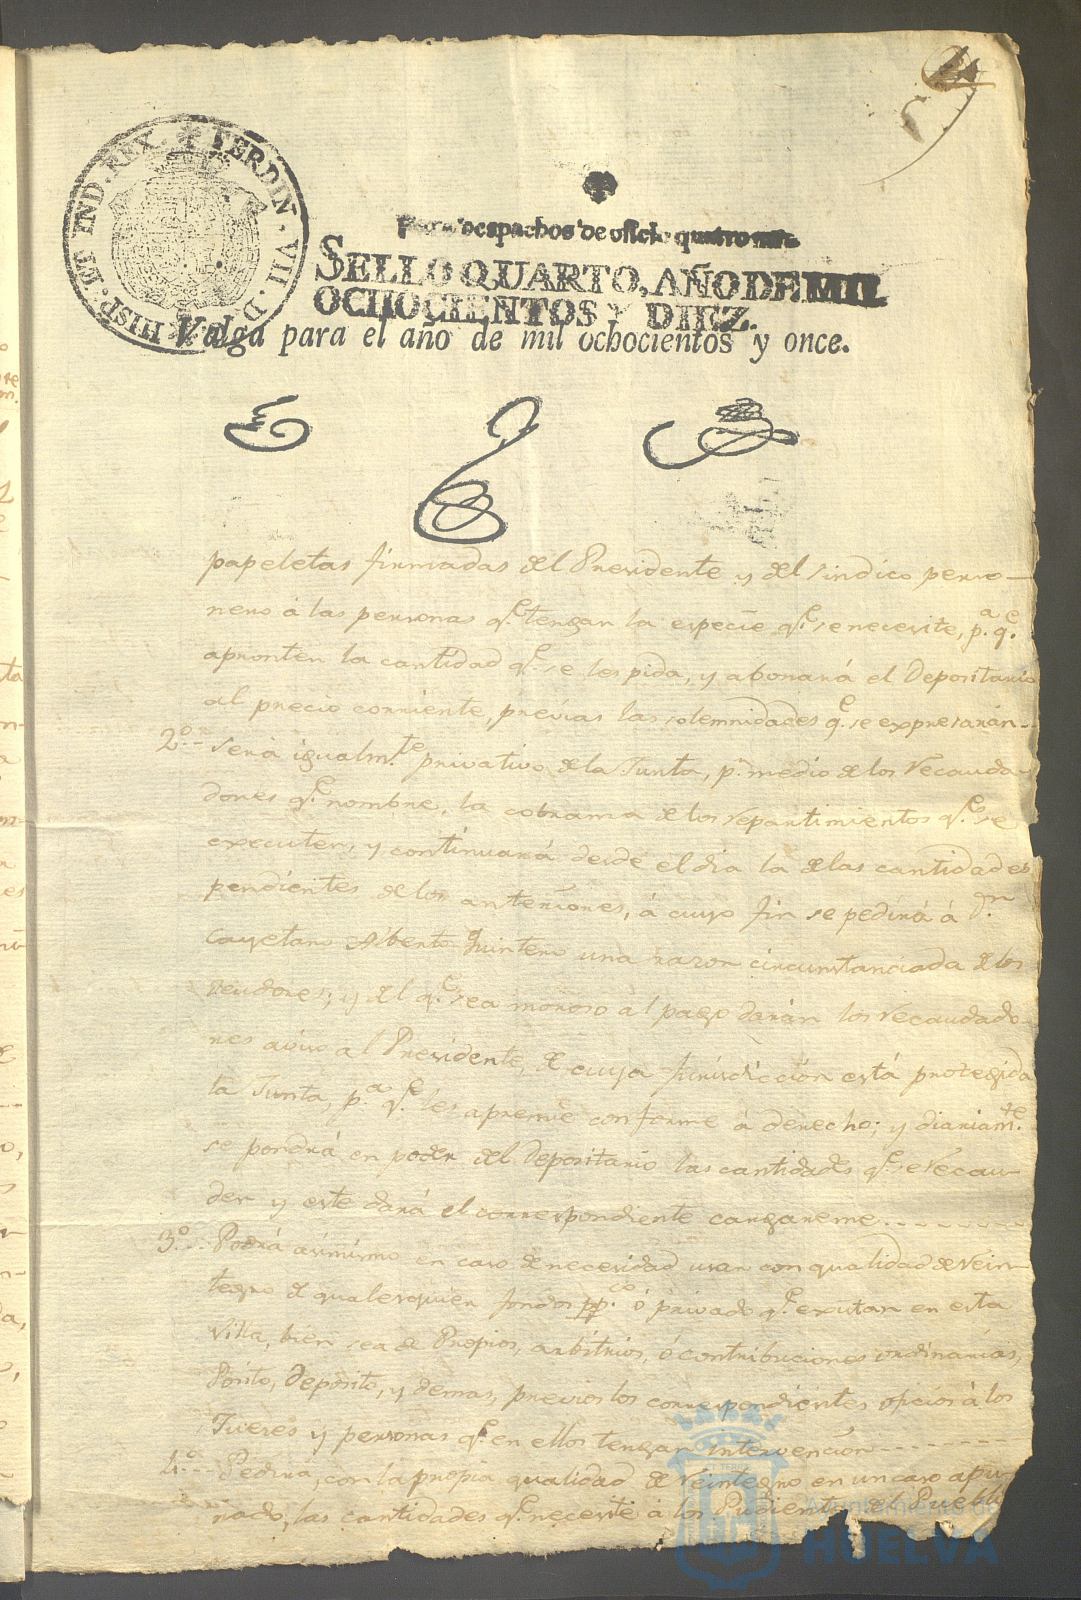 HISP. ET IND. REX. * FERDIN. VII. D. G.
Para despachos de oficio quatro mrs.
SELLO QUARTO, AÑO DE MIL
OCHOCIENTOS Y DIEZ.
Valga para el año de mil ochocientos y once.
papeletas firmadas del Presidente y del sindico perso-
nero á las personas q.e tengan la especie q.e se necesite, p.a q.e
apronten la cantidad q.e se les pida, y abonará el Depositario
al precio corriente, previas las solemnidades q.e se expresarán--
2.o-- Será igualm.te privativo de la Junta, p.r medio de los Recauda-
dores q.e nombre, la cobranza de los repartimientos q.e se
executen, y continuará desde el dia la de las cantidades
pendientes de los anteriores, á cuyo fin se pedirá á D.n
Cayetano Alberto Quintero una razon circunstanciada de los
deudores; y del q.e sea moroso al pago darán los Recaudado-
res aviso al Presidente, de cuya jurisdicción está protegida
la Junta, p.a q.e les apremie conforme á derecho; y diariam.te
se pondrá en poder del Depositario las cantidades q.e se recau-
den y este dará el correspondiente cargareme--------
3.o-- Podrá asimismo en caso de necesidad usar con qualidad de rein-
tegro de qualesquier fondos pp.co ó privado q.e existan en esta
Villa, bien sea de Propios, arbitrios, ó contribuciones ordinarias,
Pósito, Deposito, y demas, previos los correspondientes oficios á los
Jueces y personas q.e en ellos tengan intervención--------
4.o-- Pedirá, con la propia qualidad de reintegro en un caso apu-
rado, las cantidades q.e necesite á los Pudientes del Pueblo
Ayuntamiento de
HUELVA